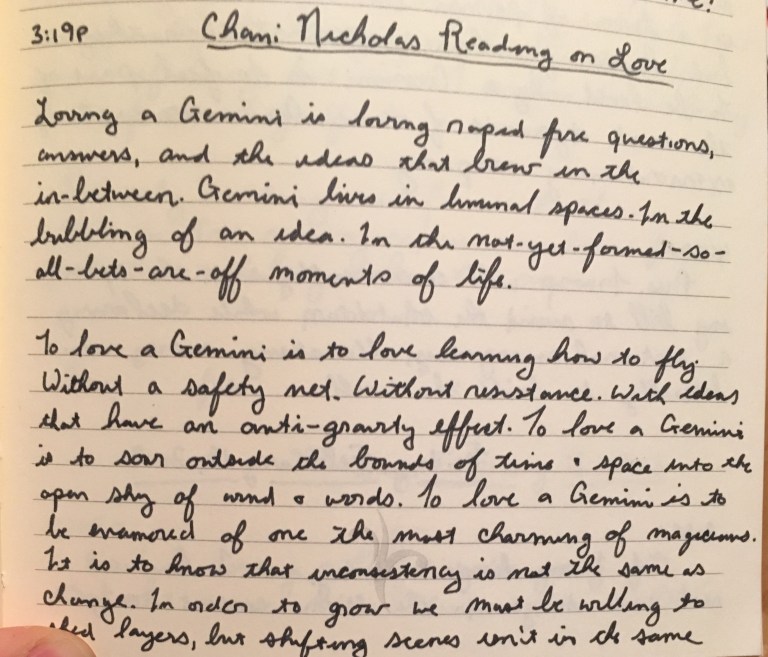 3:19P Chani Nicholas Reading on Love
Loving a Gemini is loving raped fire questions,
answers, and the ideas that brew in the
in-between. Gemini lives in liminal spaces. In the
bubbling of an idea. In the not-yet-formed-so-
all-bets-are-off moments of life.
To love a Gemini is to love learning how to fly.
Without a safety net. Without resistance. With ideas
that have an anti-gravity effect. To love a Gemini
is to soar outside the bounds of time & space into the
open sky of wind & words. To love a Gemini is to
be enamored of one the most charming of magicians.
It is to know that inconsistency is not the same as
change. In order to grow we must be willing to
shed layers, but shifting scenes isn't in the same